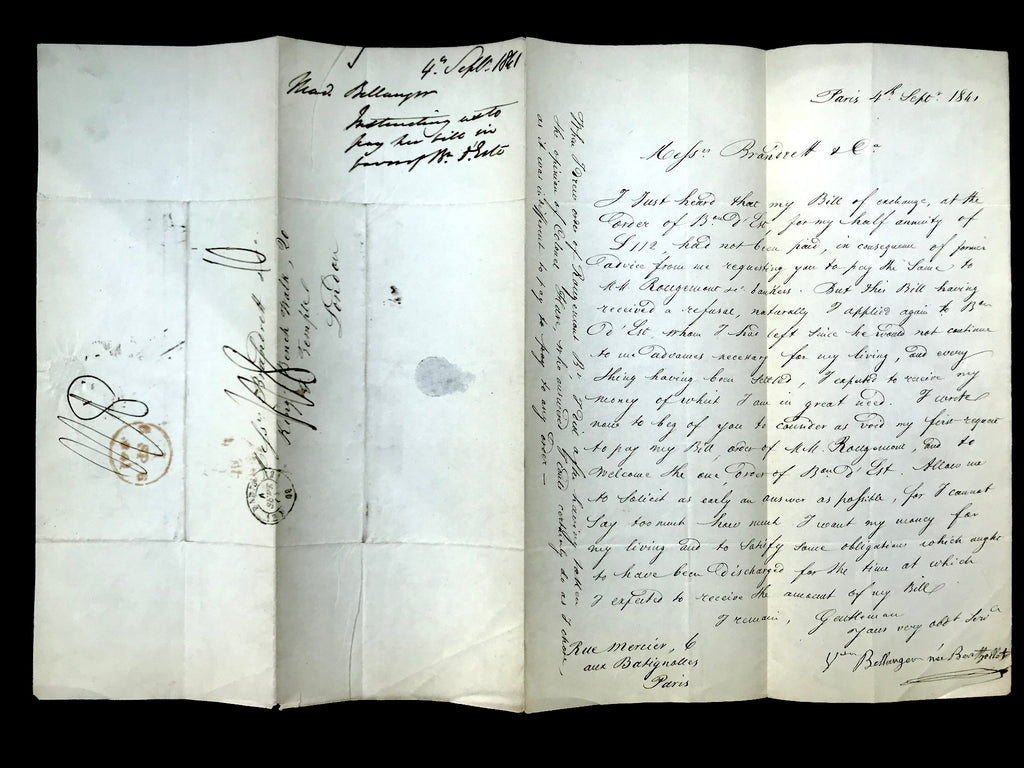 4th Septr. 1841
Mad. Bellanger
Instructing us to
pay her bill in
favor of Bn. d'Este
Messrs. Brandrett &
King's Bench Walk,
Temple
London
Paris 4th Septr. 1841
Messrs Brandrett & Co
I Just heard that my Bill of exchange, at the
order of Bon D'Est, for my half annuity of
£112, had not been paid, in consequence of former
advice from me requesting you to pay the Same to
MM Rougemont bankers. But this Bill having
received a refusal, naturally I applied again to Bon
D'Est whom I had left since he would not continue
to me advances necessary for my living, and every
thing having been settled, I expected to receive my
money of which I am in great need. I write
now to beg of you to consider as void my first request
to pay my Bill, order of MM. Rougemont, and to
welcome the one order of Bon D'Est. Allow me
to Solicit as early an answer as possible, for I cannot
Say too much how much I want my money for
my living and to Satisfy Some obligations which ought
to have been discharged for the time at which
I expected to receive the amount of my Bill
I remain, Gentlemen
Yours very obdt Servt
Bellanger née Berthollet
Rue Mercier, 6
aux Batignolles
Paris
When I drew order of Rougemont I did it after having taken
the opinion of Colonel who answered I could certainly do as I chose,
as it was indifferent to pay to any order —